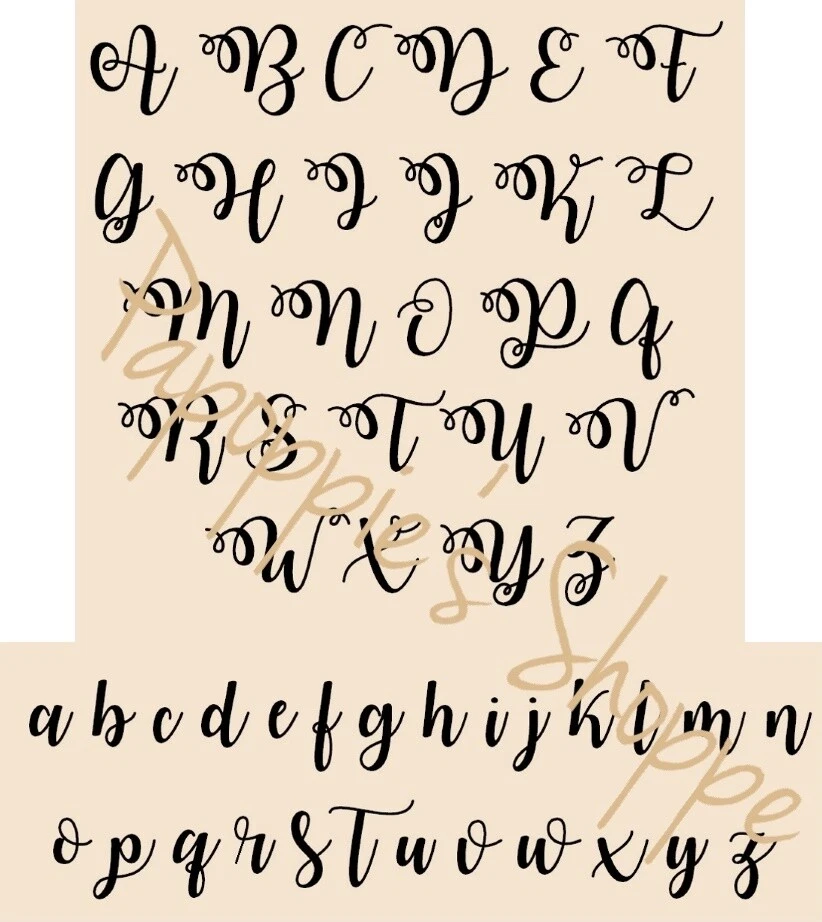 A B C D E F
G H I J K L
M N O P Q
R S T U V
W X Y Z
a b c d e f g h i j k l m n
o p q r s t u v w x y z
Papoppie's Shoppe